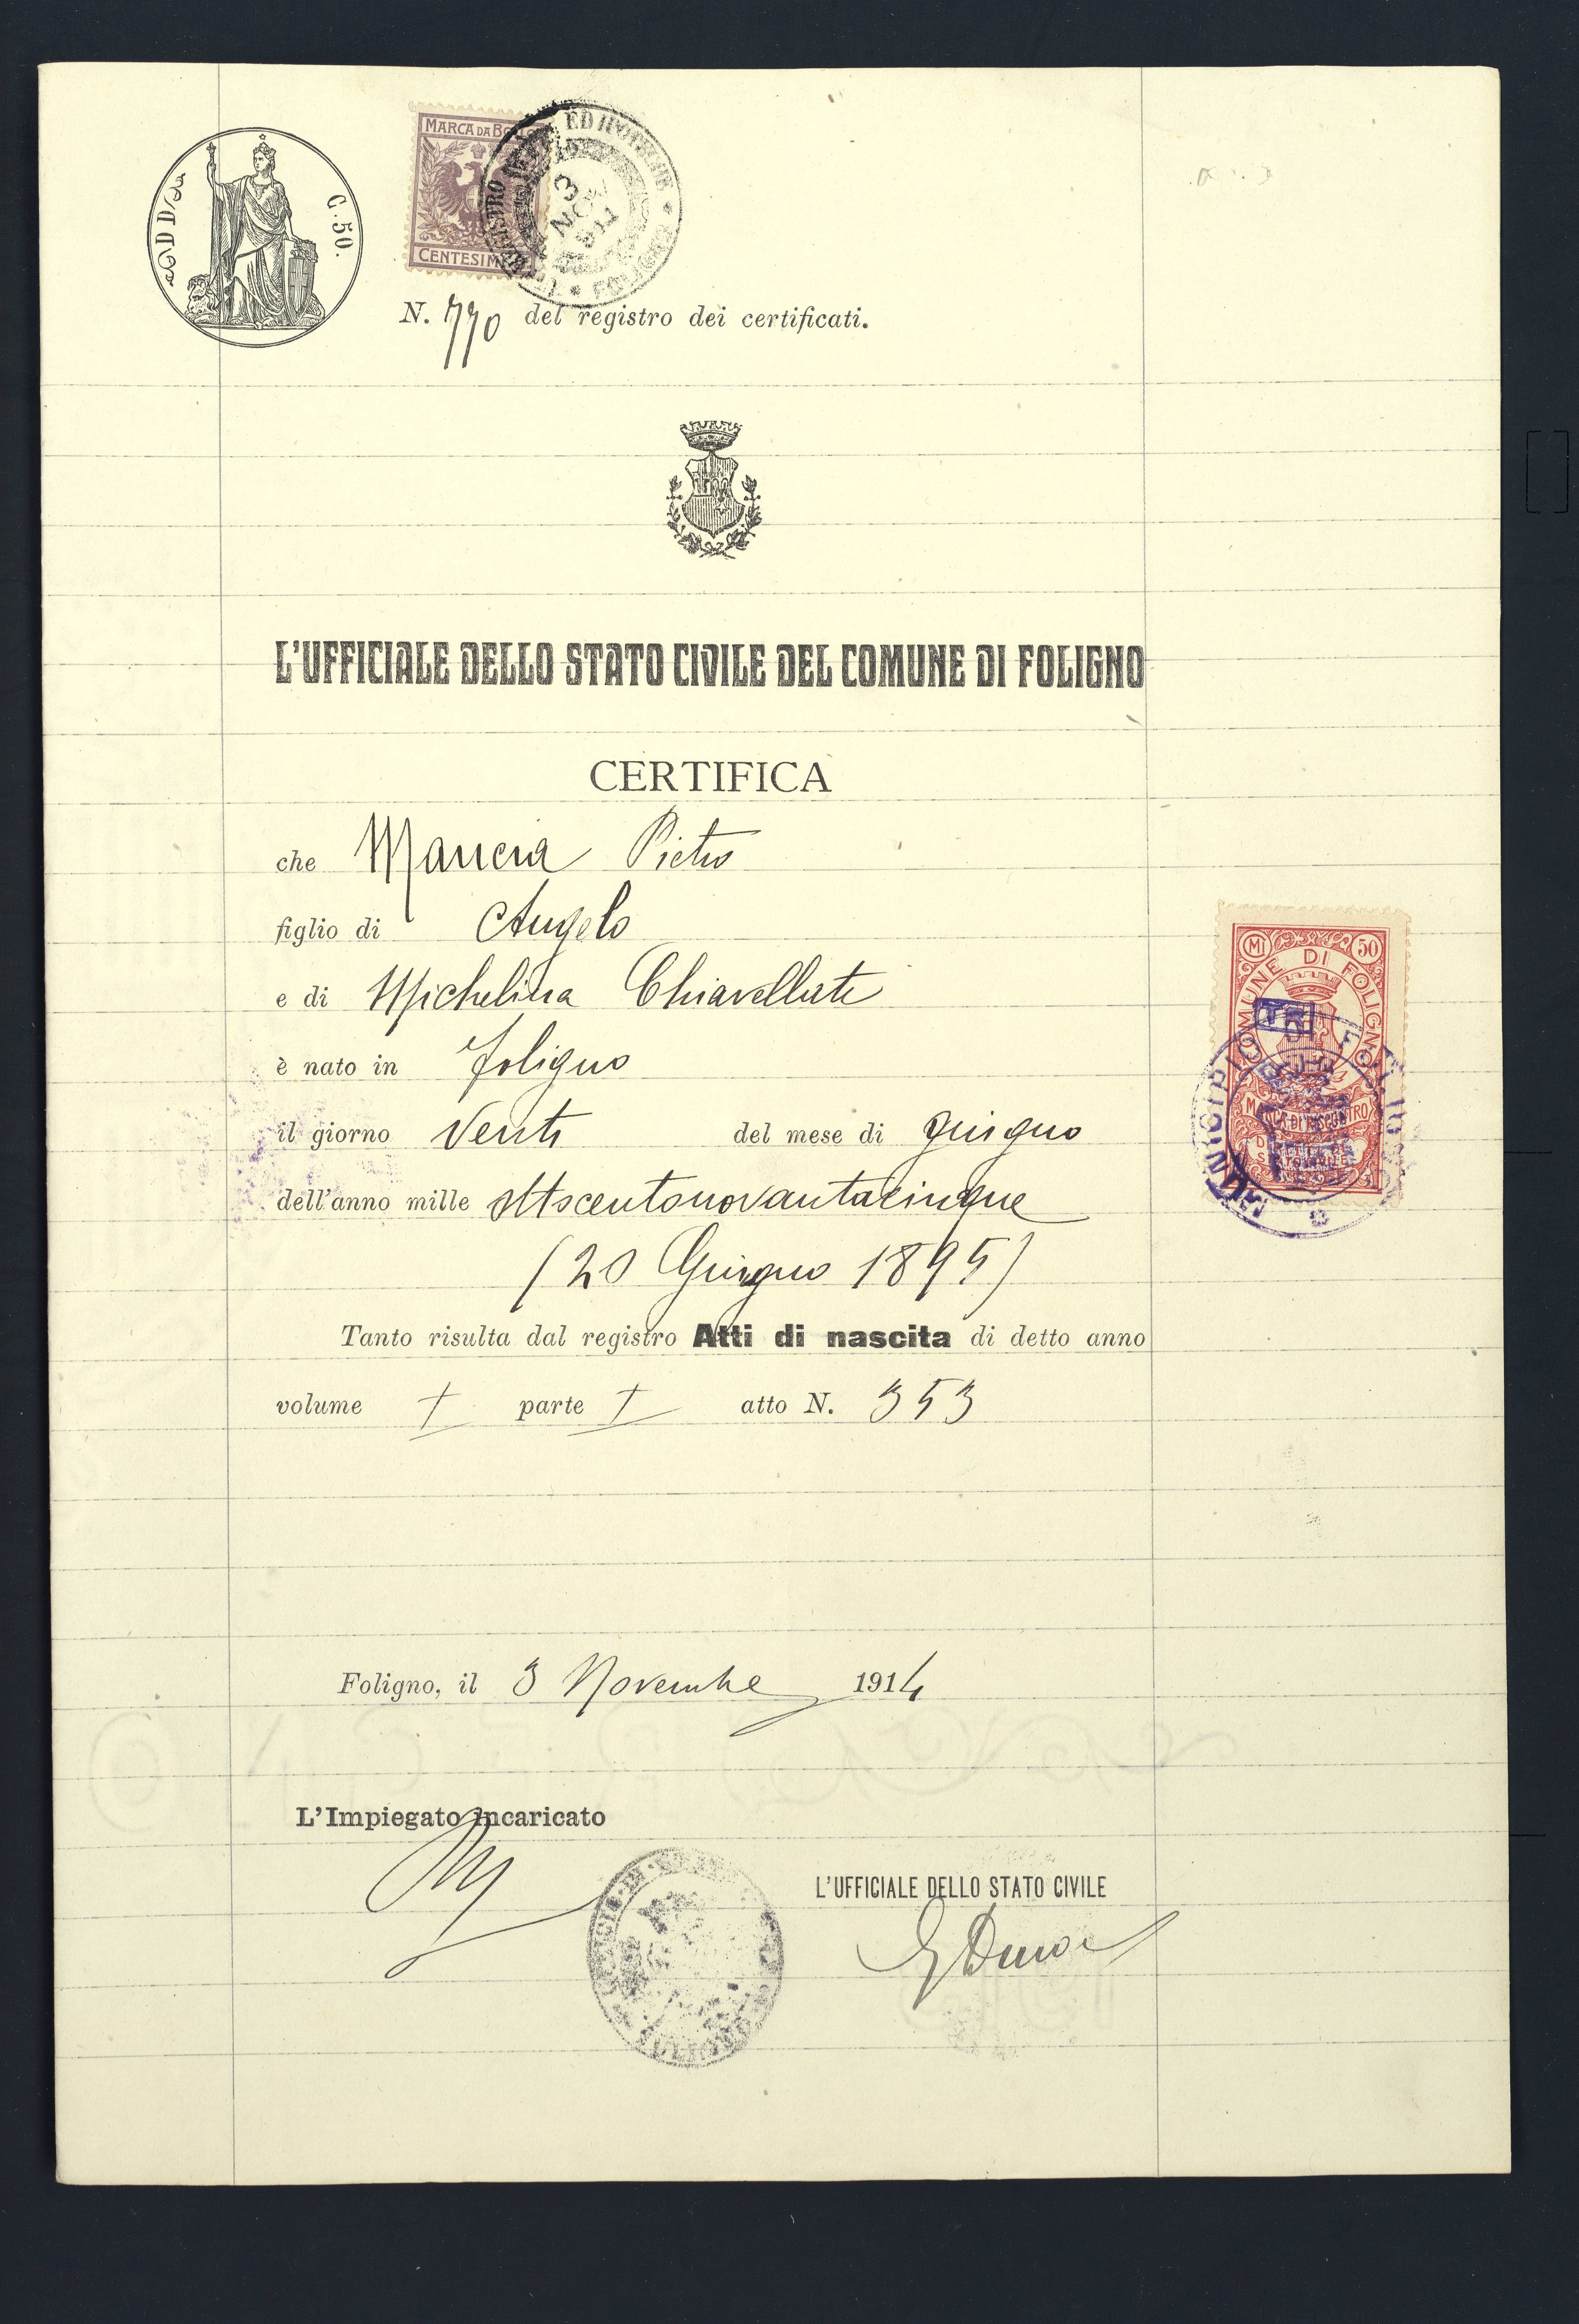 C. 50.
MARCA DA BOLLO
CENTESIMI
3 NOV
N. 770 del registro dei certificati.
L'UFFICIALE DELLO STATO CIVILE DEL COMUNE DI FOLIGNO
CERTIFICA
che Mancia Pietro
figlio di Angelo
e di Michelina Chiavellati
è nato in Foligno
il giorno Venti del mese di Giugno
dell'anno mille ottocentonovantacinque
(20 Giugno 1895)
Tanto risulta dal registro Atti di nascita di detto anno
volume I parte I atto N. 353
MI 50
COMUNE DI FOLIGNO
MARCA DI RISCONTRO
MUNICIPIO DI FOLIGNO
Foligno, il 3 Novembre 1914
L'Impiegato incaricato
L'UFFICIALE DELLO STATO CIVILE